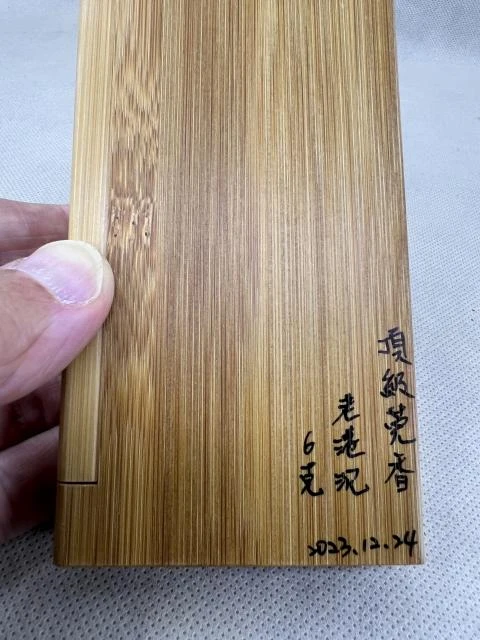 頂級莞香
老港沉
6克
2023.12.24